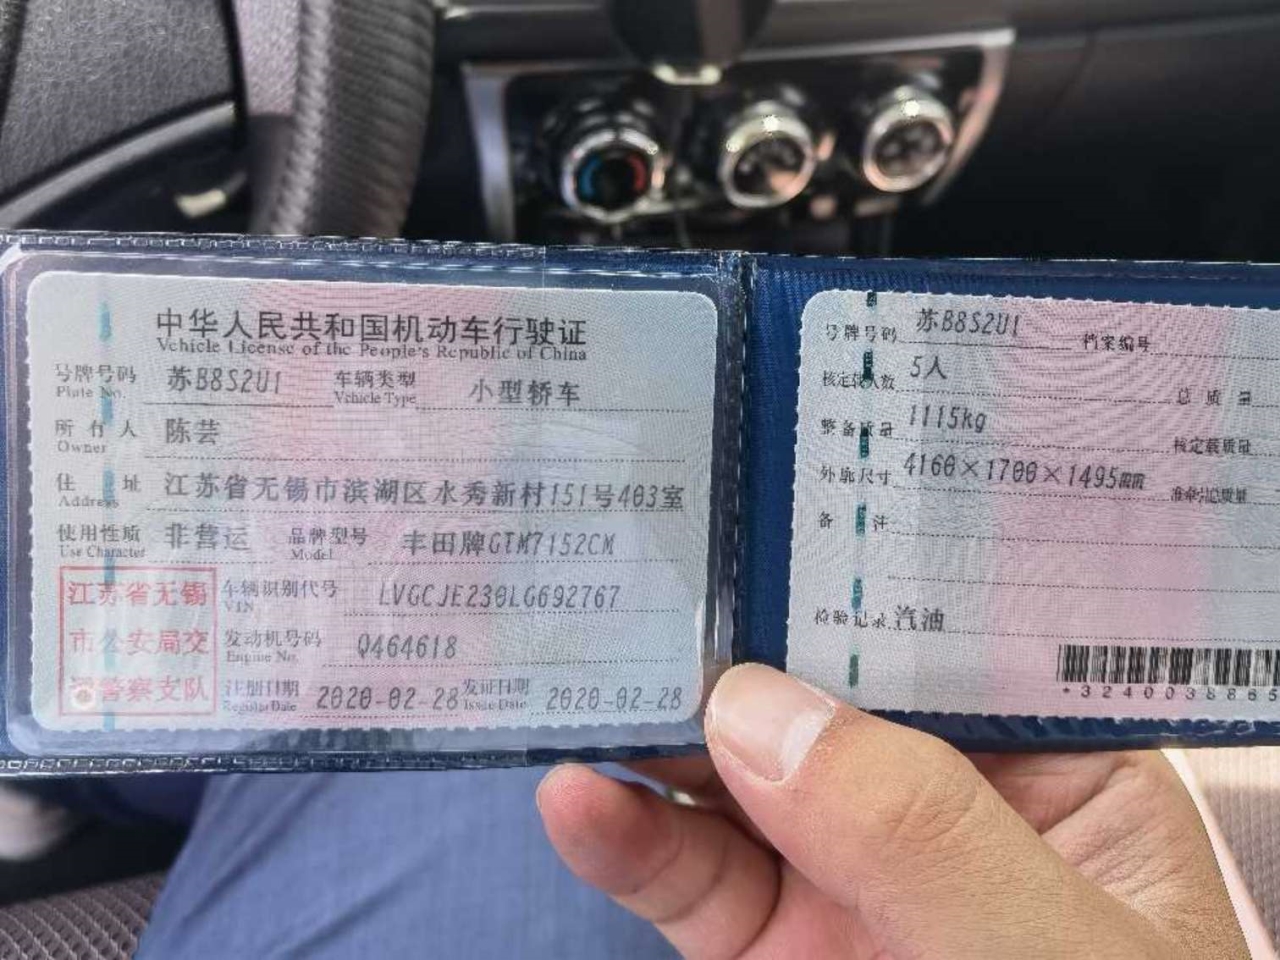 中华人民共和国机动车行驶证
Vehicle License of the People's Republic of China
号牌号码 苏B8S2U1 车辆类型 小型轿车
Plate No. Vehicle Type
所有人 陈芸
Owner
住址 江苏省无锡市滨湖区水秀新村151号403室
Address
使用性质 非营运 品牌型号 丰田牌GTM7152CM
Use Character Model
车辆识别代号 LVGCJE230LG692767
VIN
发动机号码 Q464618
Engine No.
注册日期 2020-02-28 发证日期 2020-02-28
Register Date Issue Date
江苏省无锡
市公安局交
通警察支队
号牌号码 苏B8S2U1 档案编号
核定载人数 5人 总质量
整备质量 1115kg 核定载质量
外廓尺寸 4160×1700×1495mm 准牵引总质量
备注
检验记录 汽油
*3240038865